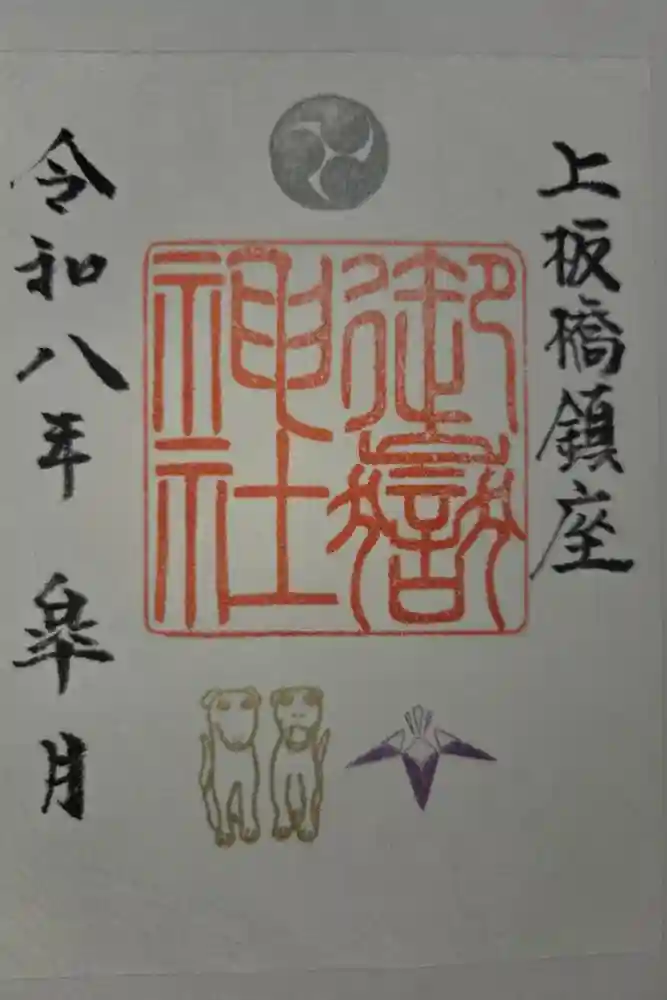 上板橋鎮座
御嶽
神社
令和八年 皐月